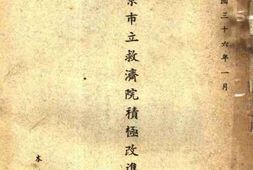 國三十六年一月
京市立救濟院積極改進
本